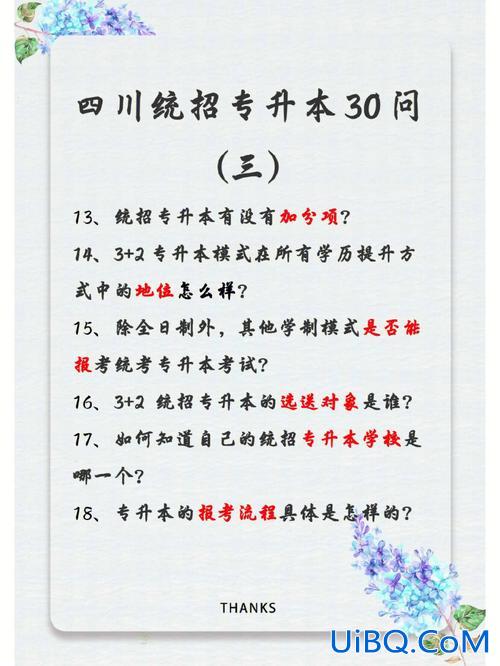 四川统招专升本30问
（三）
13、统招专升本有没有加分项？
14、3+2专升本模式在所有学历提升方
式中的地位怎么样？
15、除全日制外，其他学制模式是否能
报考统考专升本考试？
16、3+2 统招专升本的选送对象是谁？
17、如何知道自己的统招专升本学校是
哪一个？
18、专升本的报考流程具体是怎样的？
THANKS
UiBQ.CoM